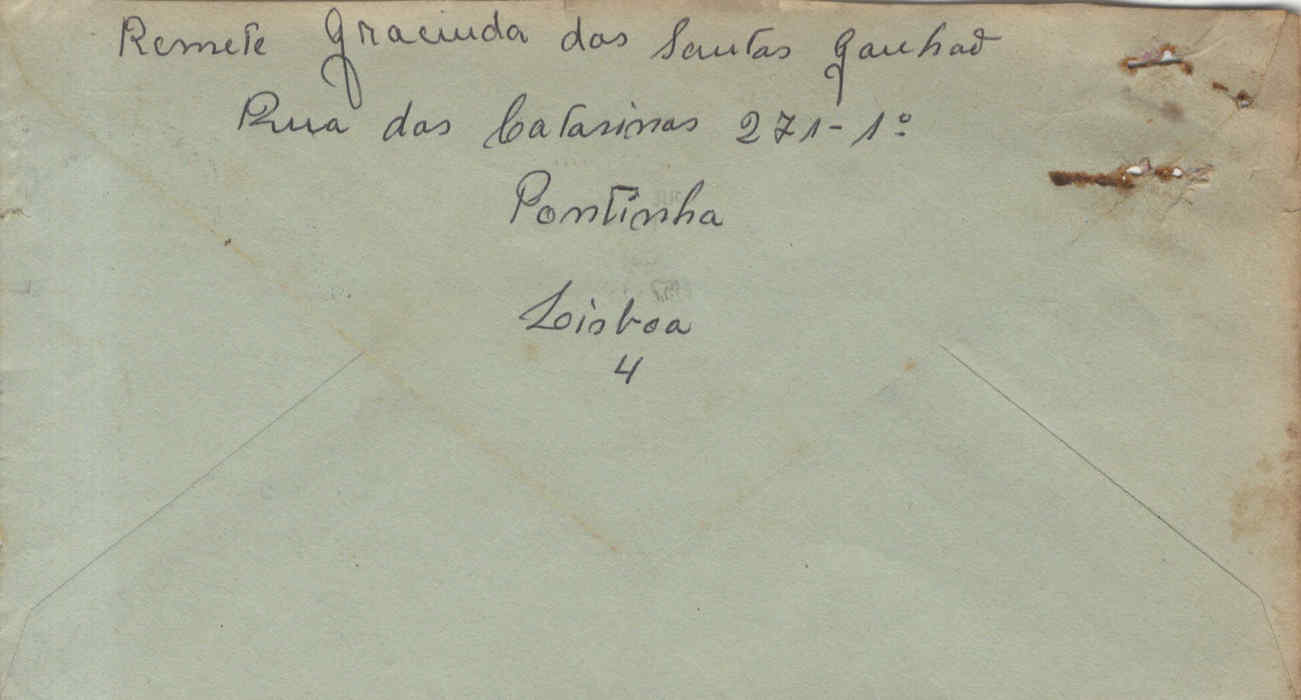 Remete Gracinda dos Santos Ganhaõ
Rua das Catarinas 271-1º
Pontinha
Lisboa
4